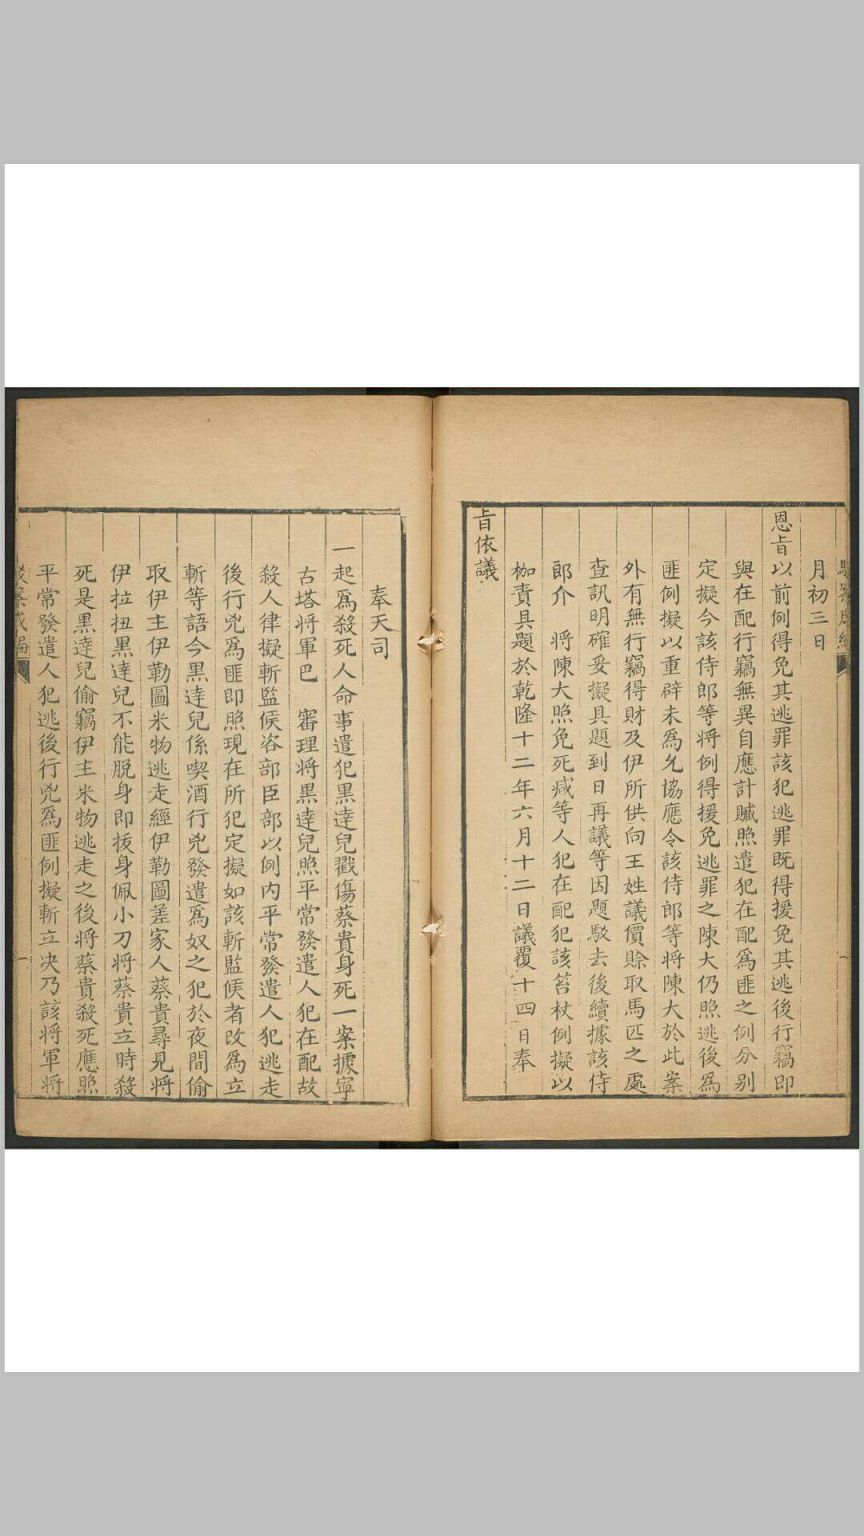 月初三日
恩旨以前例得免其逃罪該犯逃罪既得援免其逃後行竊即
與在配行竊無異自應計贓照遣犯在配爲匪之例分别
定擬今該侍郎等將例得援免逃罪之陳大仍照逃後爲
匪例擬以重辟未爲允協應令該侍郎等將陳大於此案
外有無行竊得財及伊所供向王姓議價賒取馬匹之處
查訊明確妥擬具題到日再議等因題駁去後續據該侍
郎介 將陳大照免死减等人犯在配犯該笞杖例擬以
枷責具題於乾隆十二年六月十二日議覆十四日奉
旨依議
奉天司
一起爲殺死人命事遣犯黑達兒戳傷蔡貴身死一案據寧
古塔將軍巴 審理將黑達兒照平常發遣人犯在配故
殺人律擬斬監候咨部臣部以例内平常發遣人犯逃走
後行兇爲匪即照現在所犯定擬如該斬監候者改爲立
斬等語今黑達兒係喫酒行兇發遣爲奴之犯於夜間偷
取伊主伊勒圖米物逃走經伊勒圖差家人蔡貴尋見將
伊拉扭黑達兒不能脱身即拔身佩小刀將蔡貴立時殺
死是黑達兒偷竊伊主米物逃走之後將蔡貴殺死應照
平常發遣人犯逃後行兇爲匪例擬斬立决乃該將軍將
駁案成編